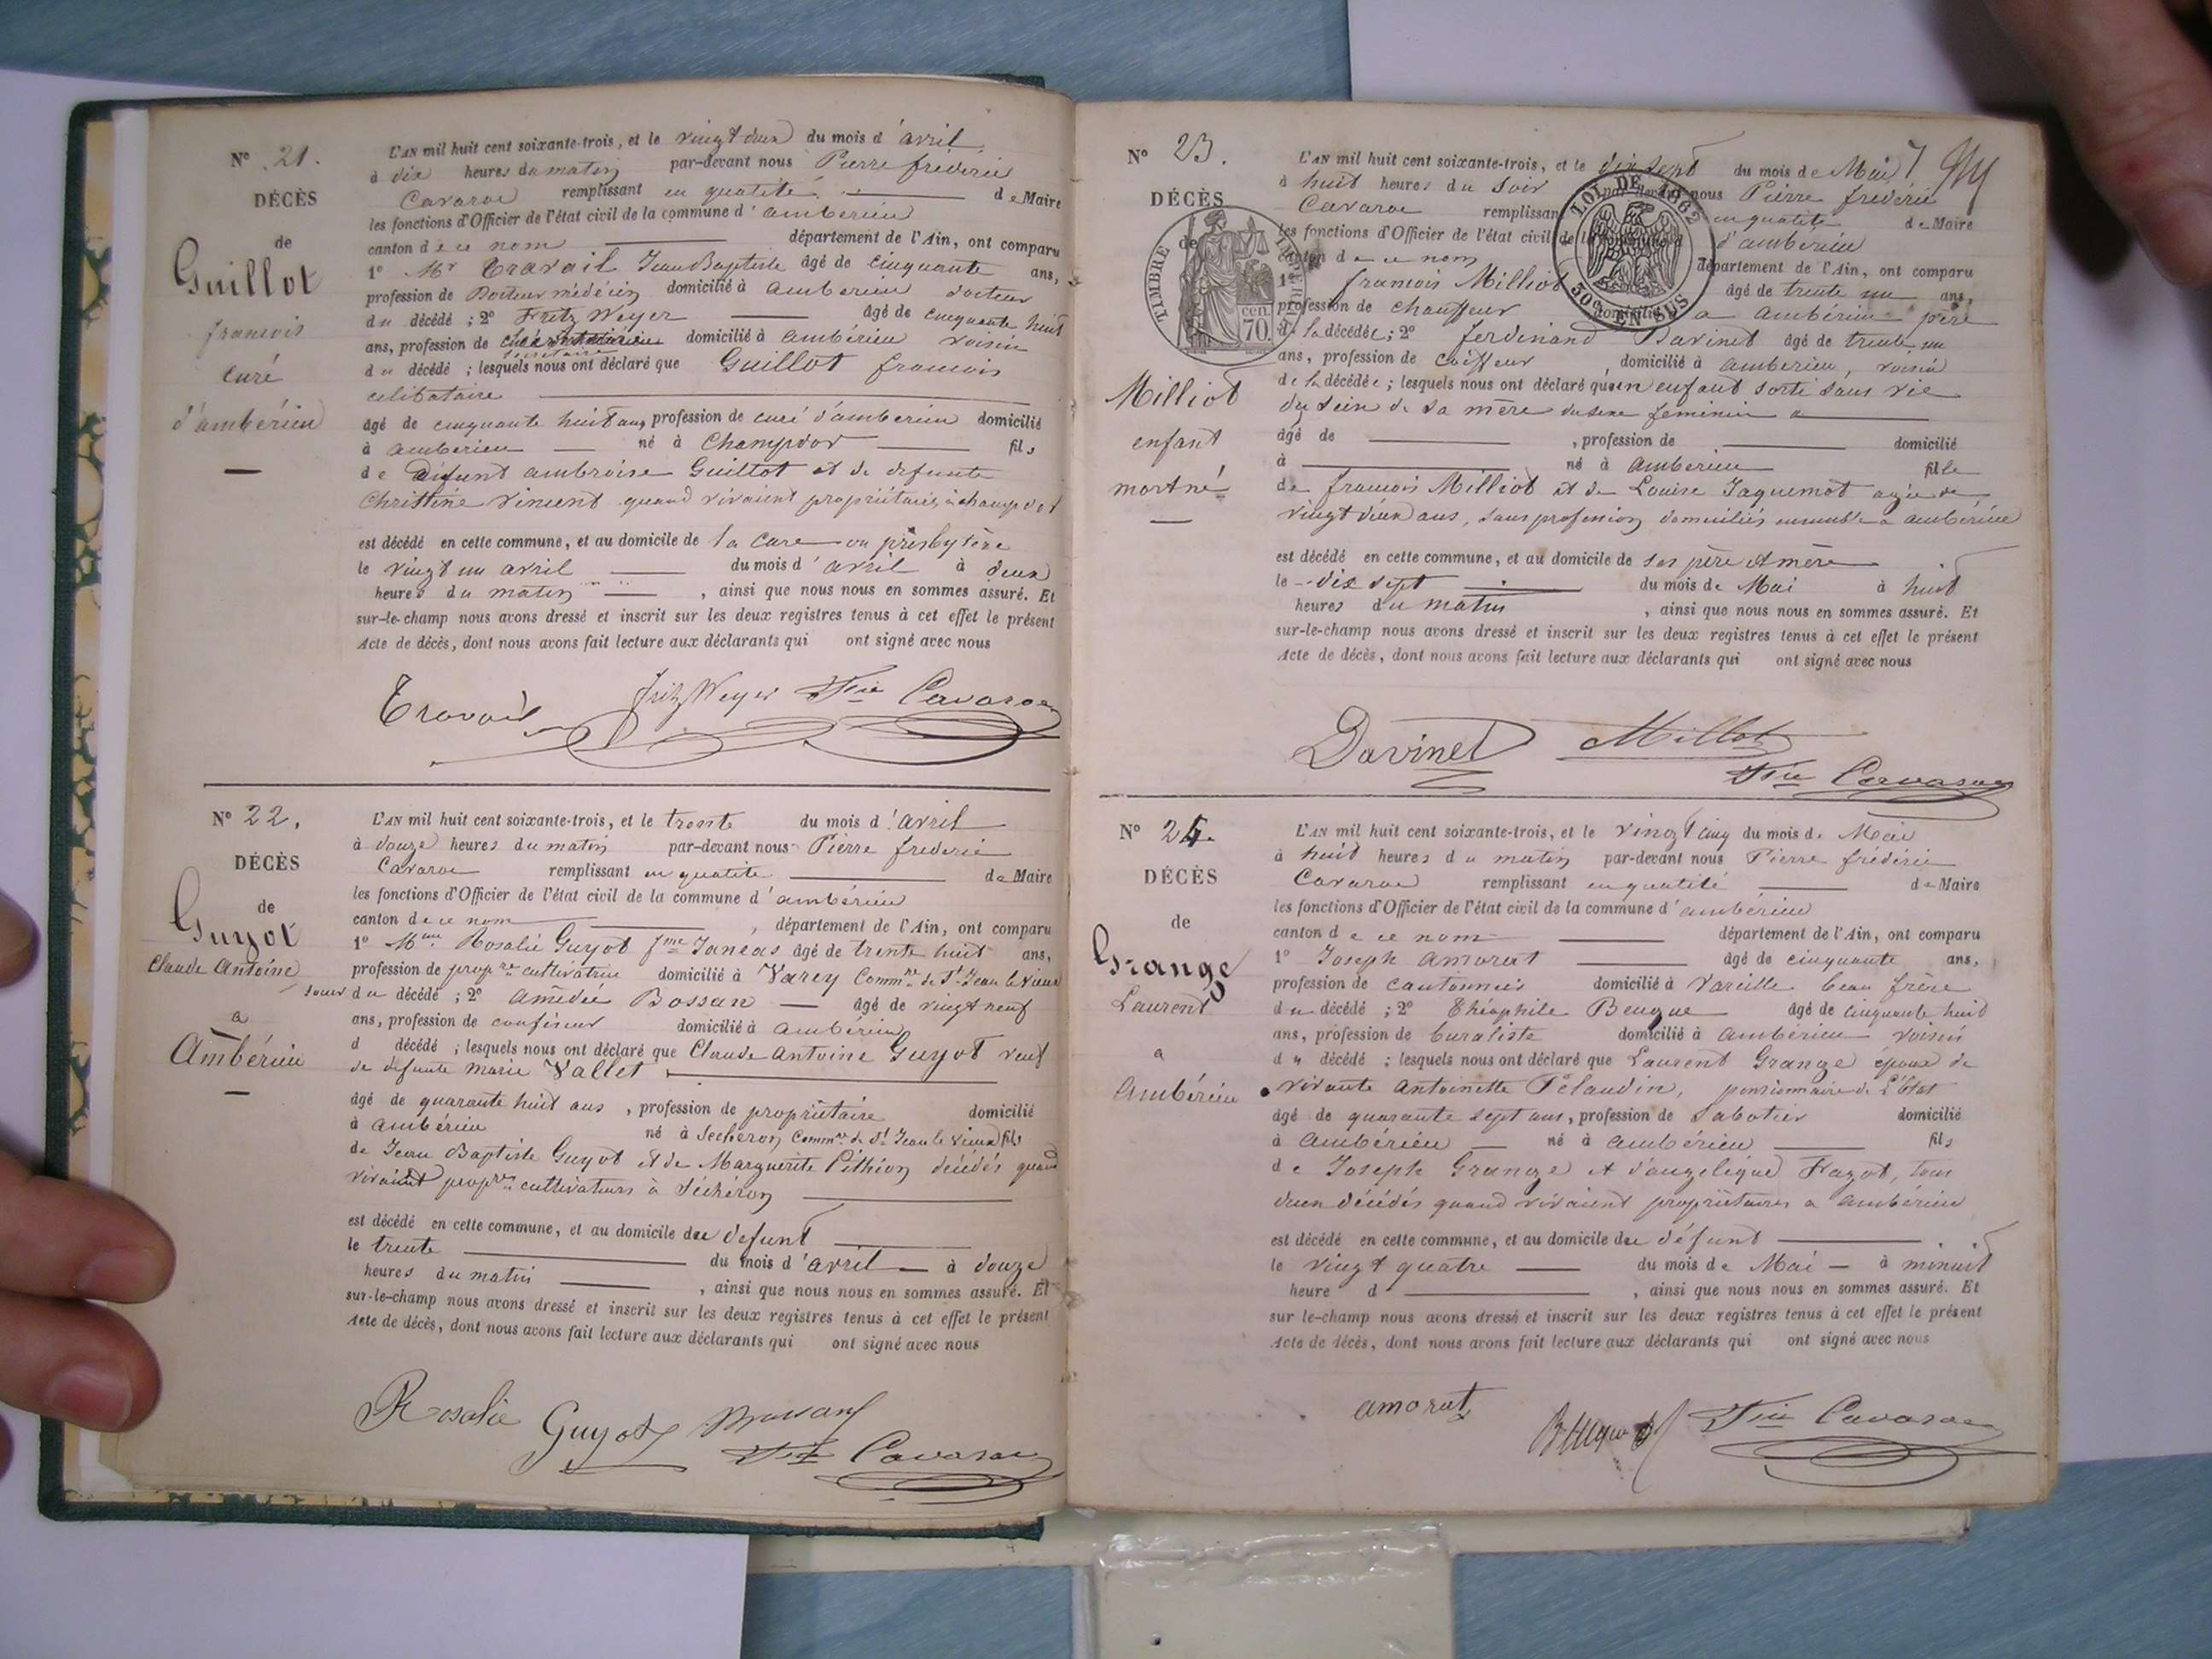 N° 21.
DÉCÈS
de
Guillot
francois
curé
d'ambérieu
L'AN mil huit cent soixante-trois, et le vingt deux du mois d'avril
à dix heures du matin par-devant nous Pierre frédéric
Cavaroc remplissant en qualité de Maire
les fonctions d'Officier de l'état civil de la commune d'ambérieu
canton de ce nom département de l'Ain, ont comparu
1° Mr Travail Jean Baptiste âgé de cinquante ans,
profession de Docteur médecin domicilié à ambérieu docteur
du décédé ; 2° Fritz Weyer âgé de cinquante huit
ans, profession de secrétaire domicilié à ambérieu voisin
du décédé ; lesquels nous ont déclaré que Guillot francois
célibataire
âgé de cinquante huit ans, profession de curé d'ambérieu domicilié
à ambérieu né à Champdor fils
de défunt ambroise Guillot et de défunte
Christine Vincent quand vivaient propriétaires à champdor
est décédé en cette commune, et au domicile de la cure ou presbytère
le vingt un avril du mois d'avril à deux
heures du matin , ainsi que nous nous en sommes assuré. Et
sur-le-champ nous avons dressé et inscrit sur les deux registres tenus à cet effet le présent
Acte de décès, dont nous avons fait lecture aux déclarants qui ont signé avec nous
Travail Fritz Weyer Fic Cavaroc
N° 22.
DÉCÈS
de
Guyot
Claude Antoine
a
Ambérieu
L'AN mil huit cent soixante-trois, et le trente du mois d'avril
à douze heures du matin par-devant nous Pierre frédéric
Cavaroc remplissant en qualité de Maire
les fonctions d'Officier de l'état civil de la commune d'ambérieu
canton de ce nom , département de l'Ain, ont comparu
1° Mme Rosalie Guyot fme Janeas âgé de trente huit ans,
profession de propre cultivatrice domicilié à Varey Commne de St Jean le vieux
soeur du décédé ; 2° Amédée Bossan âgé de vingt neuf
ans, profession de confiseur domicilié à ambérieu
d décédé ; lesquels nous ont déclaré que Claude Antoine Guyot veuf
de défunte Marie Vallet
âgé de quarante huit ans , profession de propriétaire domicilié
à ambérieu né à Secheron Commne de St Jean le vieux fils
de Jean Baptiste Guyot et de Marguerite Pithion décédés quand
vivaient propres cultivateurs à Sécheron
est décédé en cette commune, et au domicile du défunt
le trente du mois d'avril à douze
heures du matin , ainsi que nous nous en sommes assuré. Et
sur-le-champ nous avons dressé et inscrit sur les deux registres tenus à cet effet le présent
Acte de décès, dont nous avons fait lecture aux déclarants qui ont signé avec nous
Rosalie Guyot
Fic Cavaroc
N° 23.
DÉCÈS
de
TIMBRE IMPERIAL
70 cen.
Milliot
enfant
mort né
LOI DE 1862
30c EN SUS
L'AN mil huit cent soixante-trois, et le dix sept du mois de Mai 7
à huit heures du soir par-devant nous Pierre frédéric
Cavaroc remplissant en qualité de Maire
les fonctions d'Officier de l'état civil de la commune d'ambérieu
canton de ce nom département de l'Ain, ont comparu
1° francois Milliot âgé de trente un ans,
profession de chauffeur domicilié à ambérieu père
de la décédée ; 2° ferdinand Davinet âgé de trente un
ans, profession de coiffeur , domicilié à ambérieu, voisin
de la décédée ; lesquels nous ont déclaré qu'un enfant sorti sans vie
du sein de sa mère du sexe féminin a
âgé de , profession de domicilié
à né à Ambérieu fille
de francois Milliot et de Louise Jaquemot agée de
vingt deux ans, sans profession domiciliés ensemble a ambérieu
est décédé en cette commune, et au domicile de ses père et mère
le dix sept du mois de Mai à huit
heures du matin , ainsi que nous nous en sommes assuré. Et
sur-le-champ nous avons dressé et inscrit sur les deux registres tenus à cet effet le présent
Acte de décès, dont nous avons fait lecture aux déclarants qui ont signé avec nous
Davinet Milliot
Fic Cavaroc
N° 24.
DÉCÈS
de
Grange
Laurent
a
Ambérieu
L'AN mil huit cent soixante-trois, et le vingt cinq du mois de Mai
à huit heures du matin par-devant nous Pierre frédéric
Cavaroc remplissant en qualité de Maire
les fonctions d'Officier de l'état civil de la commune d'ambérieu
canton de ce nom département de l'Ain, ont comparu
1° Joseph Amorat âgé de cinquante ans,
profession de cantonnier domicilié à Vareille beau frère
du décédé ; 2° Théophile Beuque âgé de cinquante huit
ans, profession de buraliste domicilié à ambérieu voisin
du décédé ; lesquels nous ont déclaré que Laurent Grange époux de
vivante Antoinette Pelaudin, pensionnaire de L'état
âgé de quarante sept ans, profession de Sabotier domicilié
à Ambérieu né à ambérieu fils
de Joseph Grange et d'angelique Fazot, tous
deux décédés quand vivaient propriétaires a ambérieu
est décédé en cette commune, et au domicile du défunt
le vingt quatre du mois de Mai à minuit
heure d , ainsi que nous nous en sommes assuré. Et
sur le-champ nous avons dressé et inscrit sur les deux registres tenus à cet effet le présent
Acte de décès, dont nous avons fait lecture aux déclarants qui ont signé avec nous
amorat Beuque Fic Cavaroc